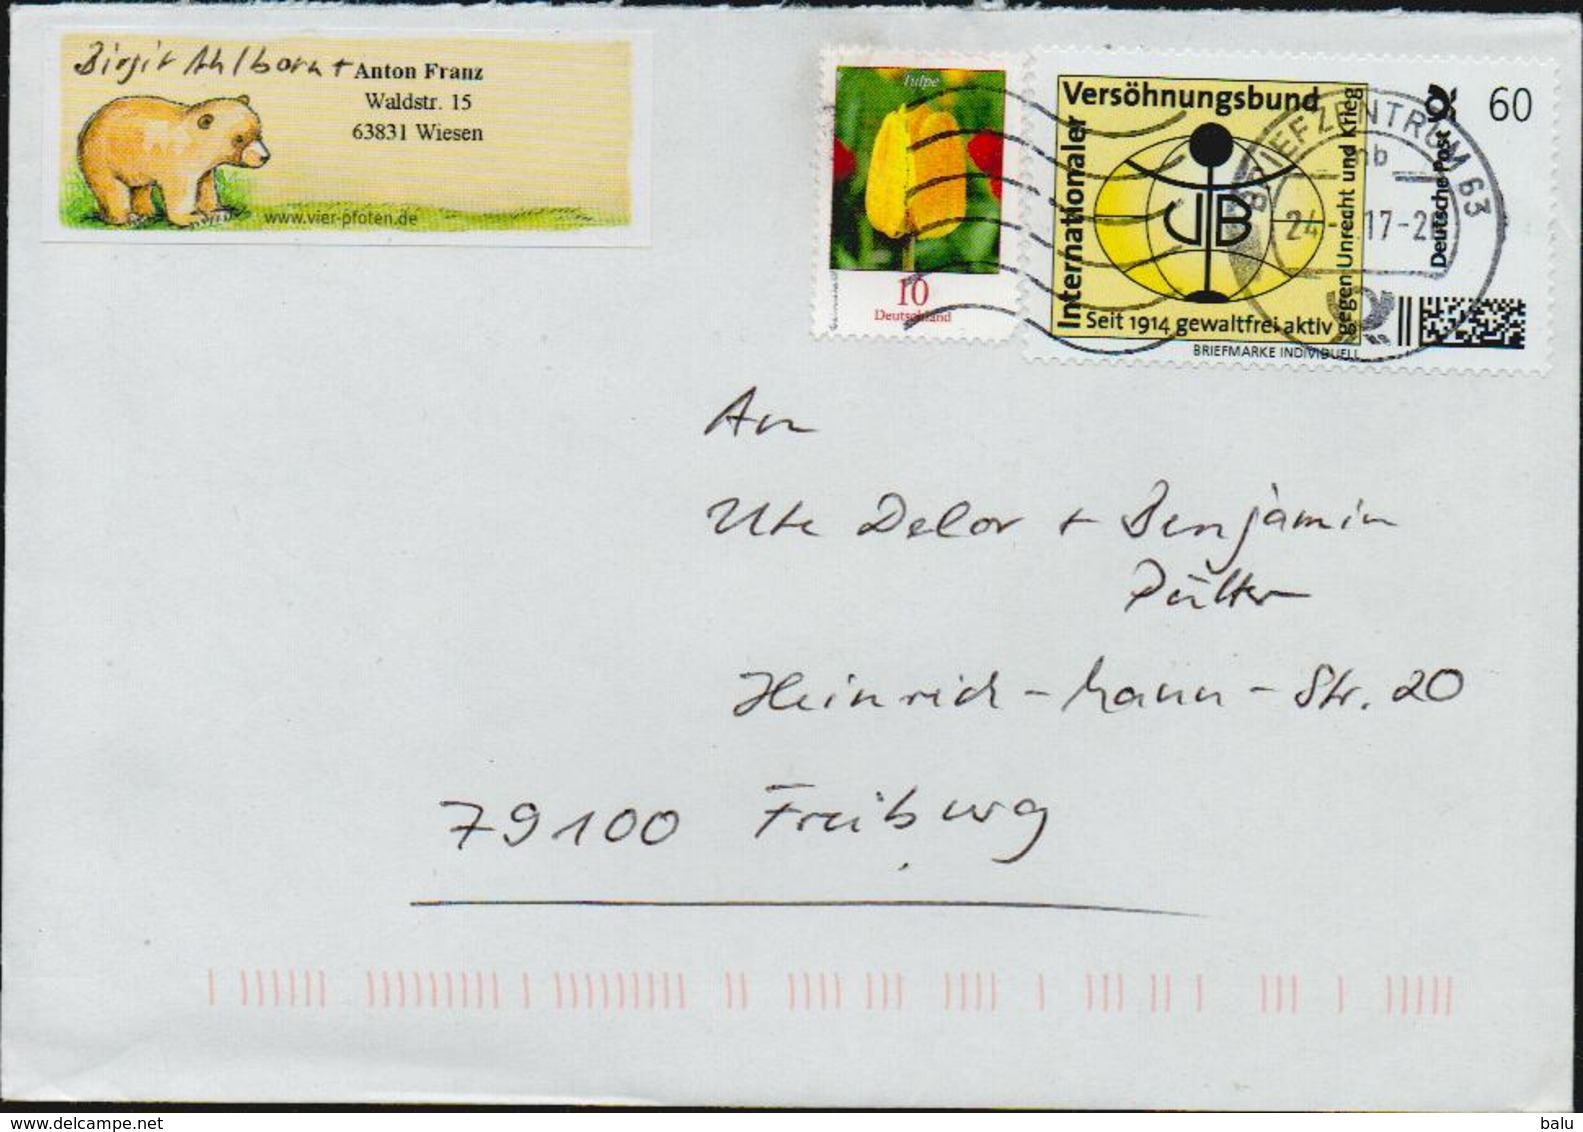 Birgit Ahlborn + Anton Franz
Waldstr. 15
63831 Wiesen
www.vier-pfoten.de
Tulpe
10
Deutschland
Internationaler
Versöhnungsbund
gegen Unrecht und Krieg
Seit 1914 gewaltfrei aktiv
BRIEFMARKE INDIVIDUELL
Deutsche Post
60
BRIEFZENTRUM 63
mb
An
Ute Delor + Benjamin
Pütter
Heinrich-Mann-Str. 20
79100 Freiburg
www.delcampe.net
balu